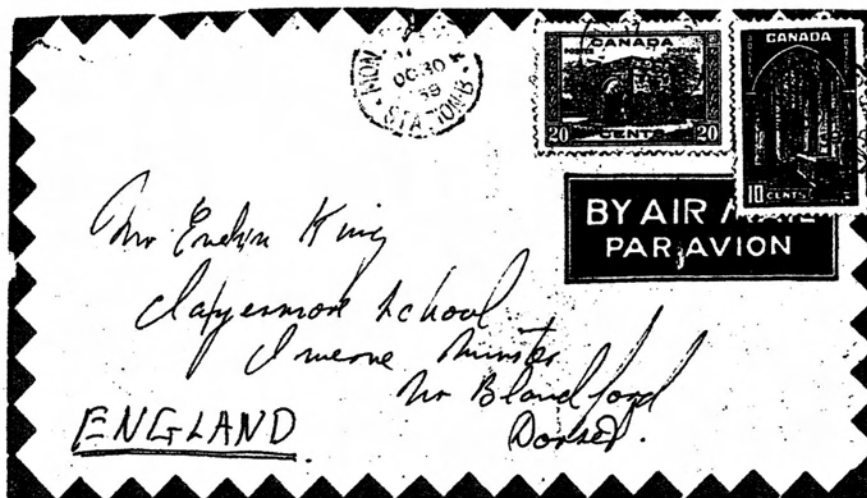 MON
OC 30
39
STATION-B
CANADA
POSTES POSTAGE
20 CENTS 20
CANADA
10 CENTS
BY AIR MAIL
PAR AVION
Mr Evelyn King
Clayesmore School
Iwerne Minster
Nr Blandford
Dorset.
ENGLAND